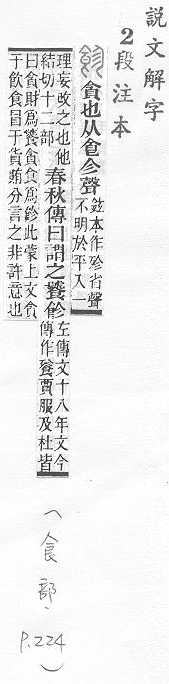 說文解字
2段注本
貪也从食㐱聲
鉉本作殄省聲
不明於平入一
理妄改之也他
結切十二部
春秋傳曰謂之饕飻
左傳文十八年文今
傳作餮賈服及杜皆
曰貪財爲饕貪食爲飻此蒙上文貪
于飲食冒于貨賄分言之非許意也
(食部、
P.224)